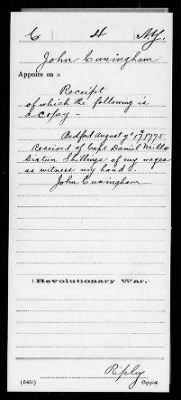 C 4 N.Y.
John Cuningham
Appears on a
Receipt
of which the following is
a copy -
Bedford August ye 17th 1775
Received of Capt Daniel Mills
Sixteen Shillings of my wages
as witness my hand.
John Cuningham
(Revolutionary War.)
Ripley
(545) Copyist.